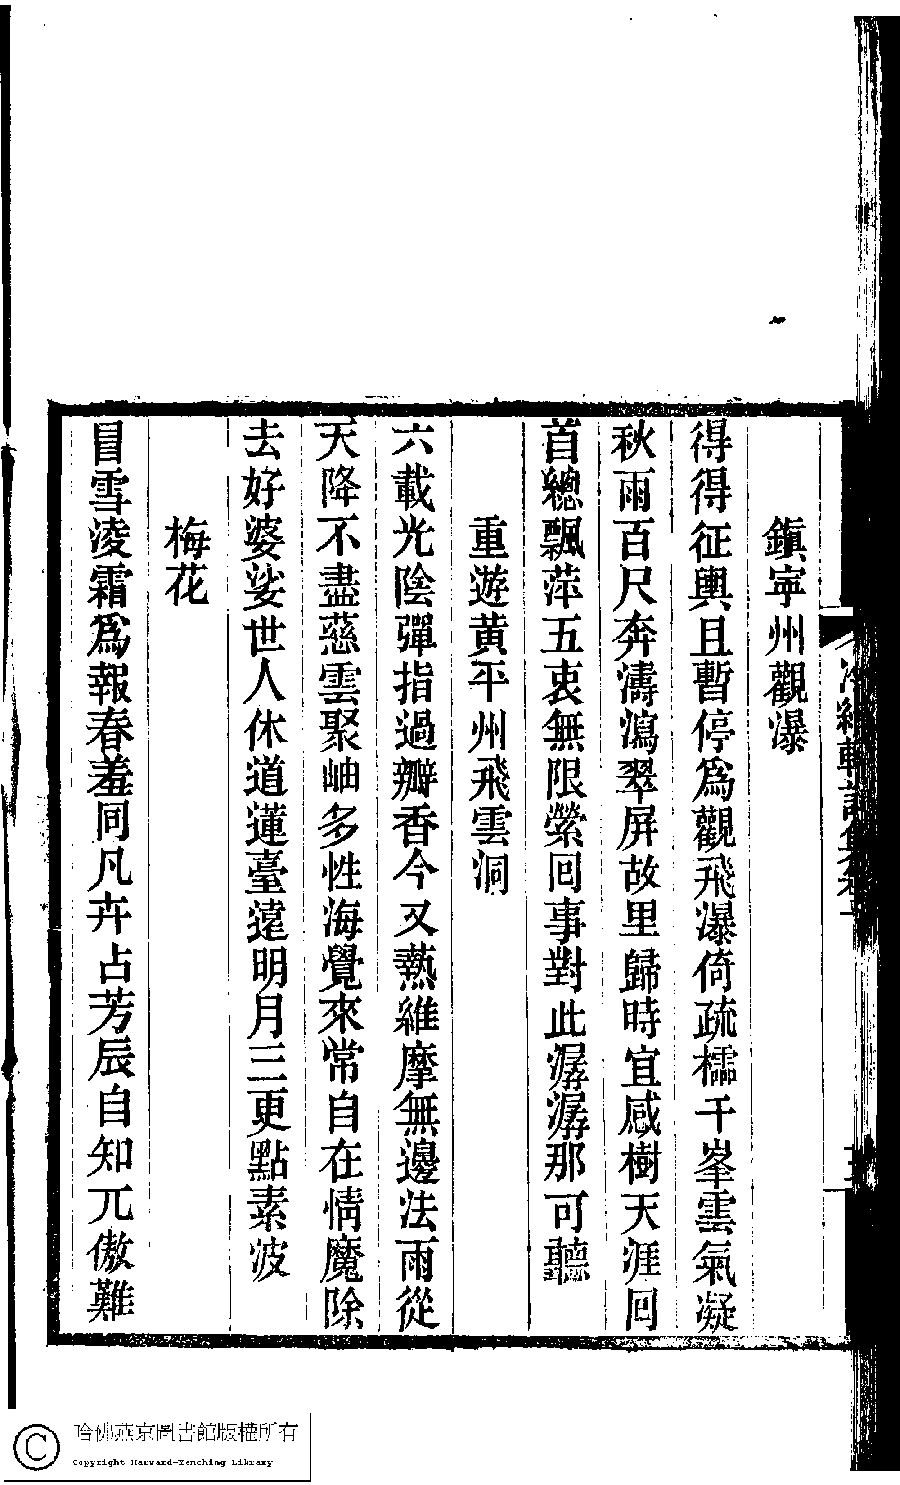 鎭寧州觀瀑
得得征輿且暫停爲觀飛瀑倚疏櫺千峯雲氣凝
秋雨百尺奔濤瀉翠屏故里歸時宜感樹天涯回
首總飄萍五衷無限縈回事對此潺潺那可聽
重遊黃平州飛雲洞
六載光陰彈指過瓣香今又爇維摩無邊法雨從
天降不盡慈雲聚岫多性海覺來常自在情魔除
去好婆娑世人休道蓮臺遠明月三更點素波
梅花
冒雪淩霜爲報春羞同凡卉占芳辰自知兀傲難
哈佛燕京圖書館版權所有
Copyright Harvard-Yenching Library